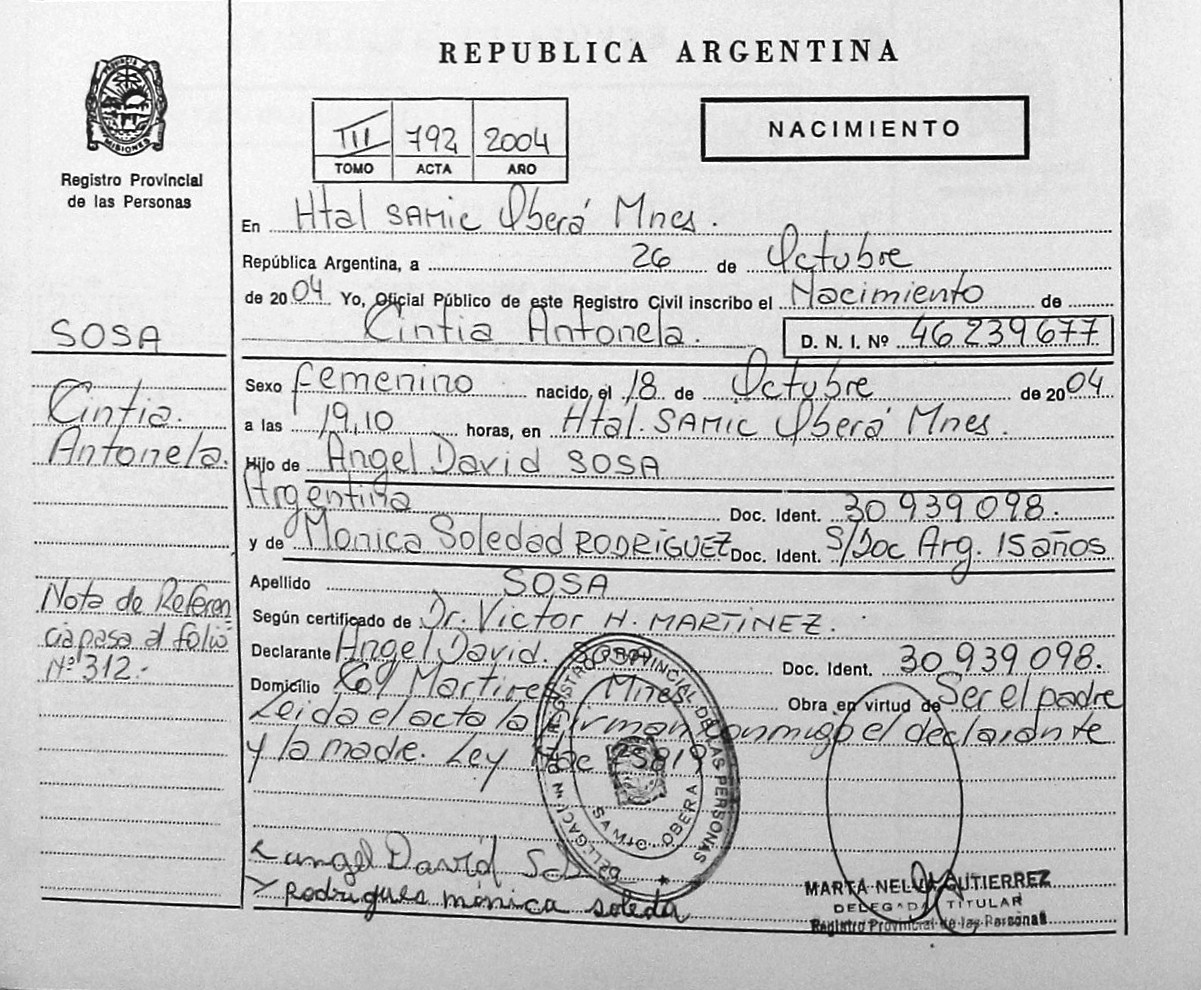 REPUBLICA ARGENTINA
PROVINCIA DE
MISIONES
Registro Provincial
de las Personas
III 792 2004
TOMO ACTA AÑO
NACIMIENTO
En Htal SAMIC Oberá Mnes.
República Argentina, a 26 de Octubre
de 2004 Yo, Oficial Público de este Registro Civil inscribo el Nacimiento de
Cintia Antonela. D. N. I. Nº 46.239.677
SOSA
Cintia.
Antonela.
Sexo femenino nacido el 18 de Octubre de 2004
a las 19,10 horas, en Htal. SAMIC Oberá Mnes.
Hijo de Angel David SOSA
Argentina Doc. Ident. 30 939 098.
y de Monica Soledad RODRIGUEZ Doc. Ident. S/Doc Arg. 15 años
Apellido SOSA
Según certificado de Dr. Victor H. MARTINEZ.
Declarante Angel David. Sosa Doc. Ident. 30 939 098.
Domicilio Col Martires Mnes Obra en virtud de Ser el padre
Leida el acta la firman conmigo el declarante
y la madre. Ley Nac 25819
Nota de Referen
cia pasa al folio
Nº 312.-
REGISTRO PROVINCIAL DE LAS PERSONAS
SAMIC OBERA
Angel David Sosa
Rodrigues mónica soleda
MARTA NELVA GUTIERREZ
DELEGADA TITULAR
Registro Provincial de las Personas